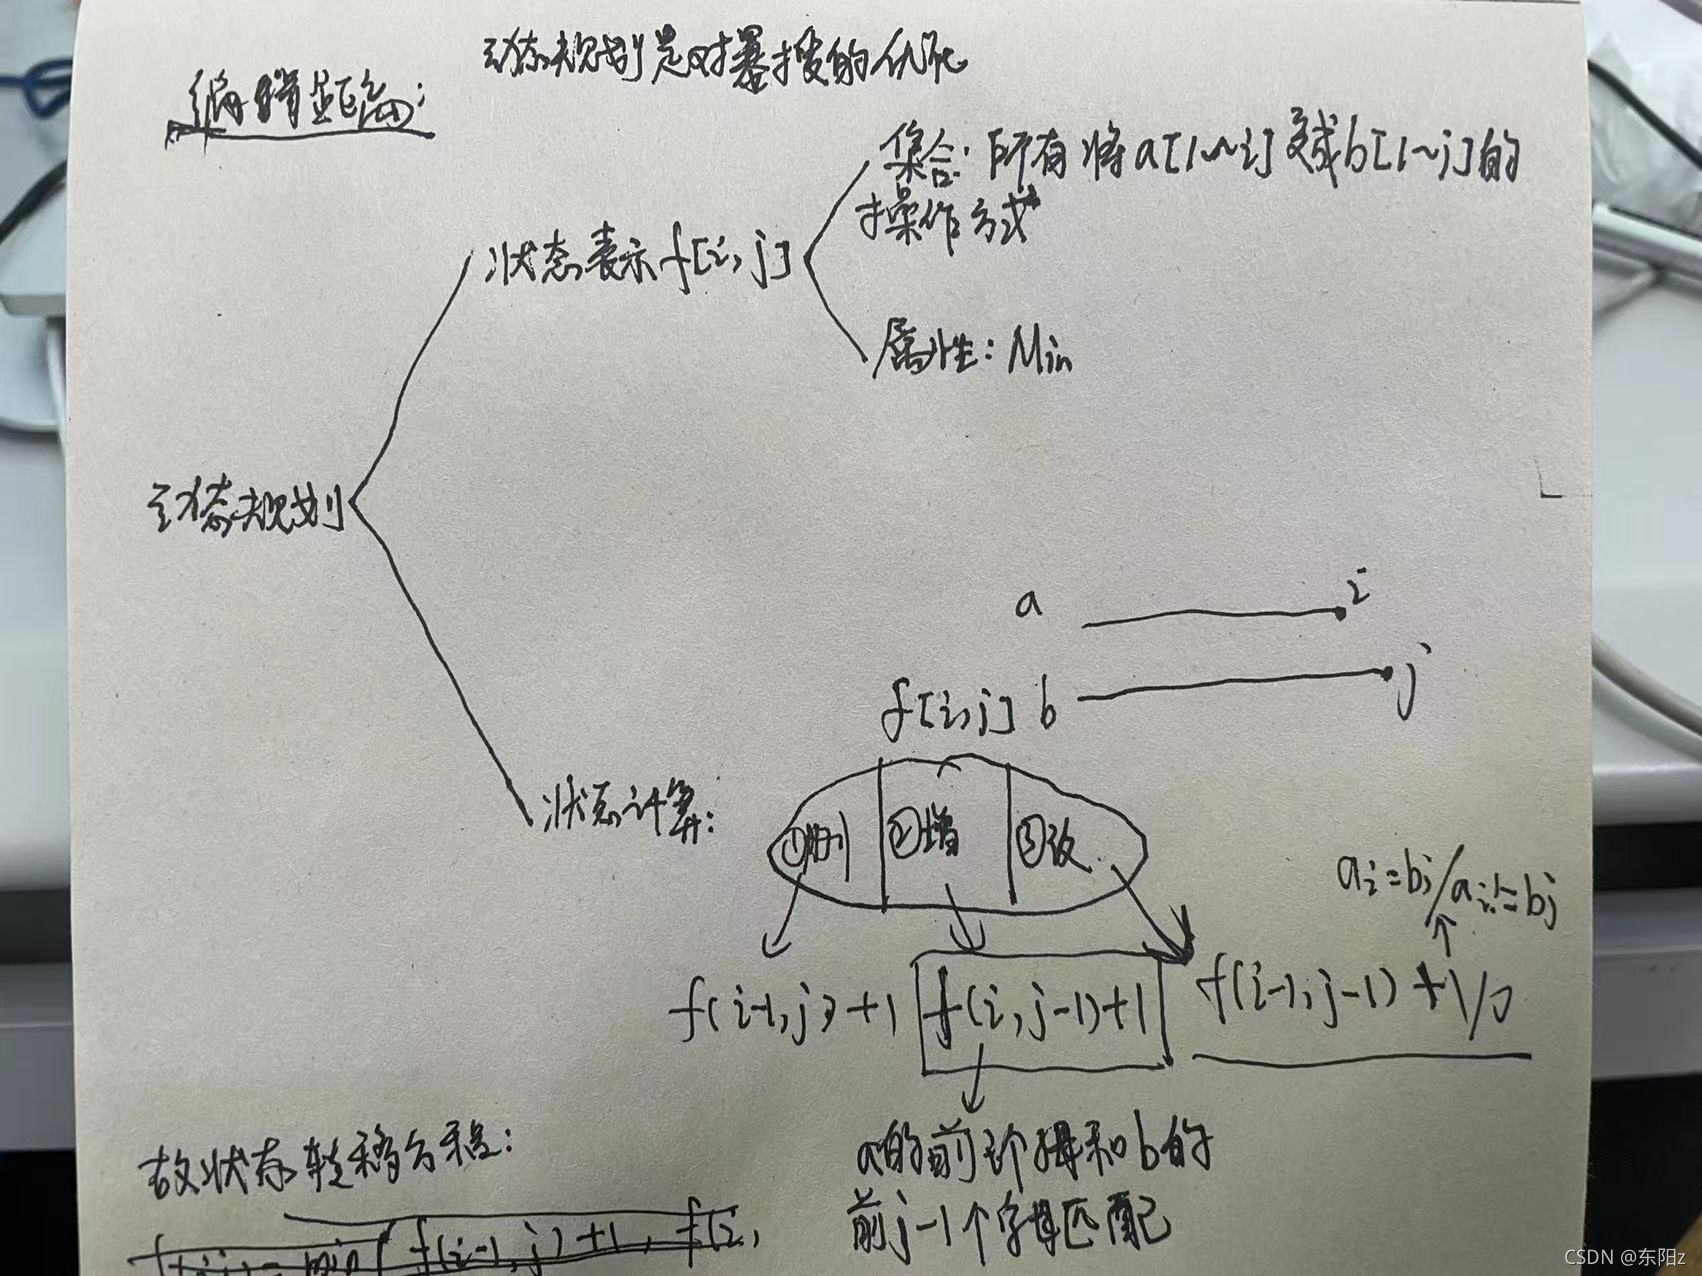 动态规划是对暴搜的优化
编辑距离:
集合:所有将a[1~i]变成b[1~j]的
操作方式
状态表示f[i,j]
属性:Min
动态规划
a i
f[i,j] b j
状态计算:
①删 ②增 ③改
ai=bj/ai!=bj
f(i-1,j)+1 f(i,j-1)+1 f(i-1,j-1)+1/0
故状态转移方程:
a的前i个字母和b的
前j-1个字母匹配
f(i,j)=min(f(i-1,j)+1,f(i,
CSDN @东阳z